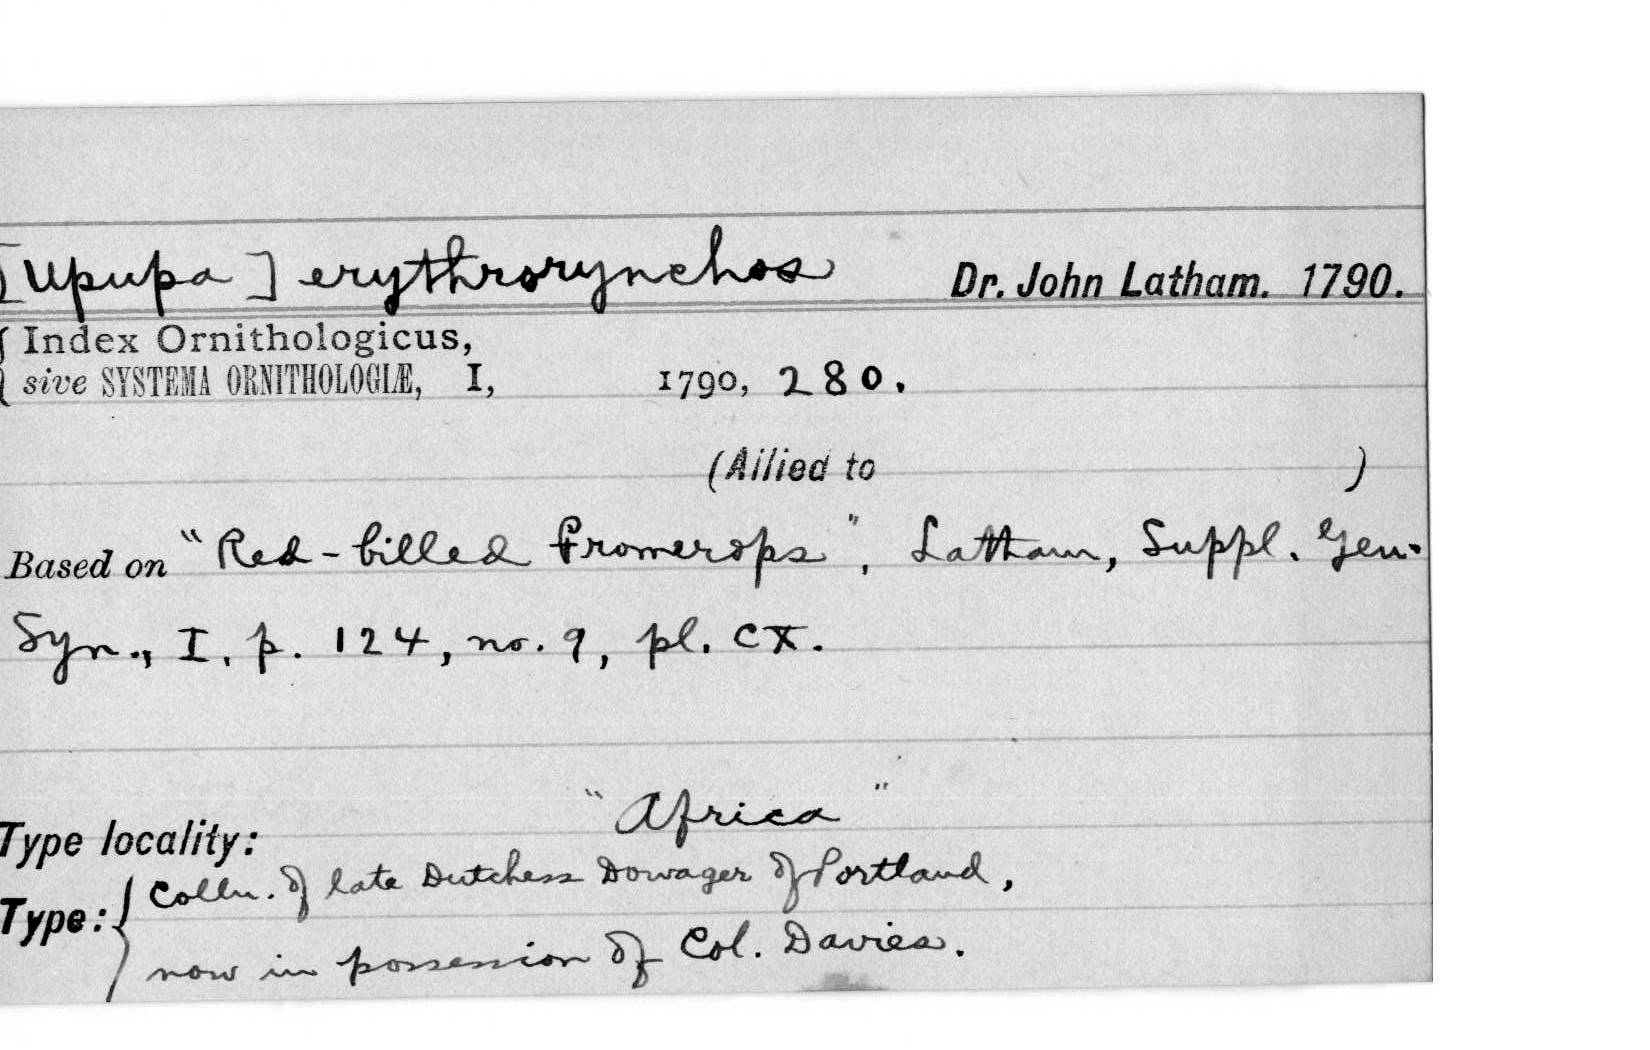 [Upupa] erythrorynchos Dr. John Latham. 1790.
{ Index Ornithologicus,
sive SYSTEMA ORNITHOLOGIÆ, I, 1790, 280.
(Allied to )
Based on "Red-billed Promerops", Latham, Suppl. Gen.
Syn., I, p. 124, no. 9, pl. CX.
"Africa"
Type locality:
Type: { Colln. of late Dutchess Dowager of Portland,
now in possession of Col. Davies.